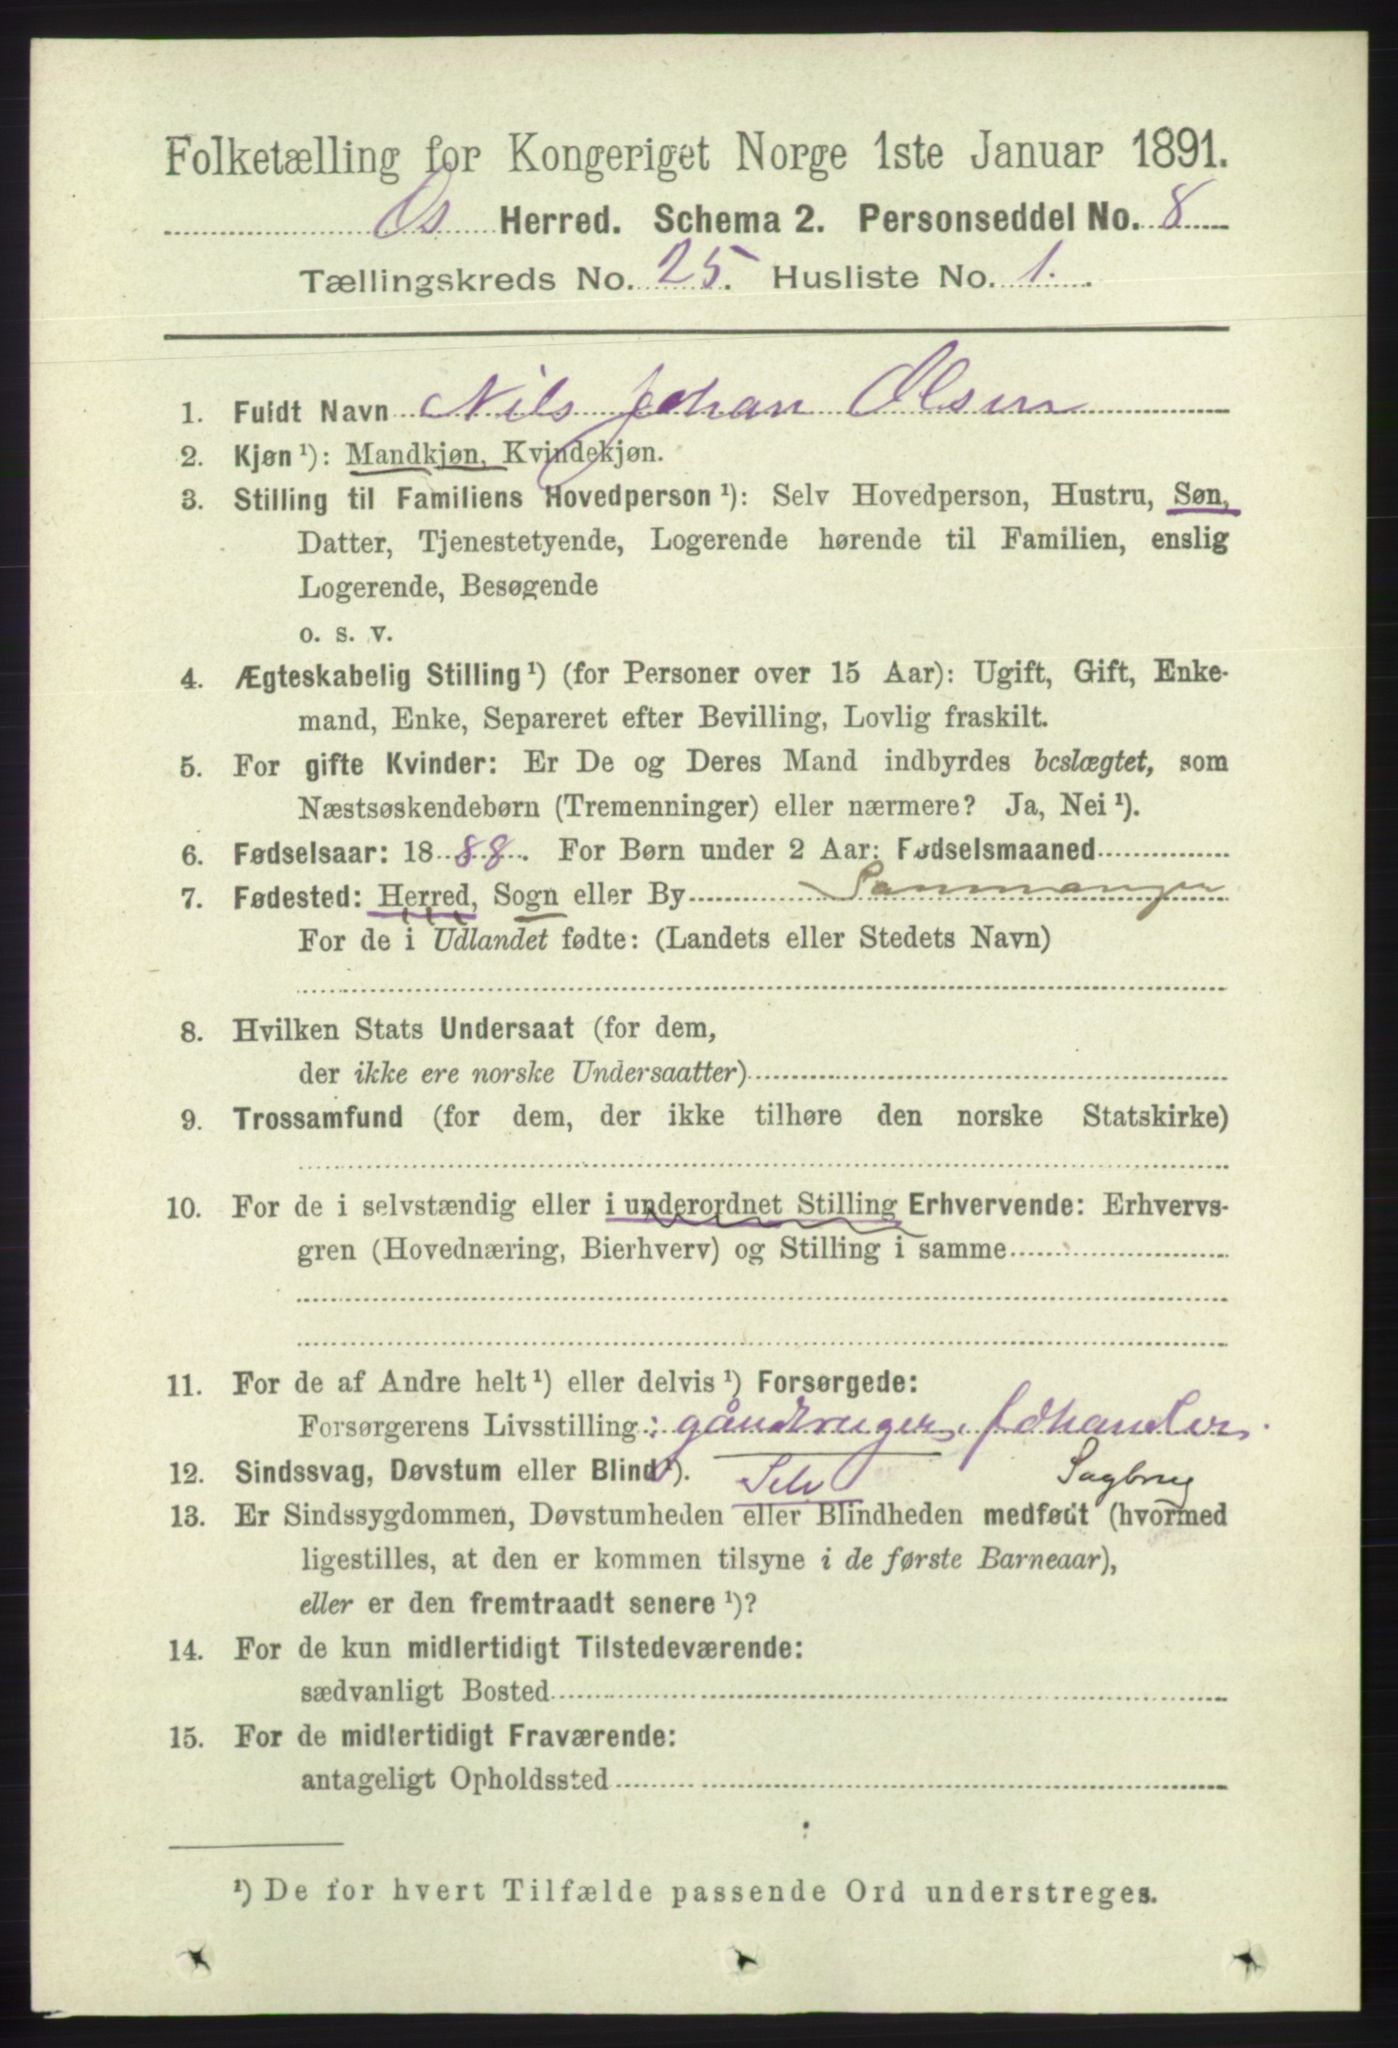 Folketælling for Kongeriget Norge 1ste Januar 1891.
Os Herred. Schema 2. Personseddel No. 8
Tællingskreds No. 25. Husliste No. 1.
1. Fuldt Navn Nils Johan Olsen
2. Kjøn ¹): Mandkjøn, Kvindekjøn.
3. Stilling til Familiens Hovedperson ¹): Selv Hovedperson, Hustru, Søn,
Datter, Tjenestetyende, Logerende hørende til Familien, enslig
Logerende, Besøgende
o. s. v.
4. Ægteskabelig Stilling ¹) (for Personer over 15 Aar): Ugift, Gift, Enke-
mand, Enke, Separeret efter Bevilling, Lovlig fraskilt.
5. For gifte Kvinder: Er De og Deres Mand indbyrdes beslægtet, som
Næstsøskendebørn (Tremenninger) eller nærmere? Ja, Nei ¹).
6. Fødselsaar: 1888. For Børn under 2 Aar: Fødselsmaaned
7. Fødested: Herred, Sogn eller By Samnanger
For de i Udlandet fødte: (Landets eller Stedets Navn)
8. Hvilken Stats Undersaat (for dem,
der ikke ere norske Undersaatter)
9. Trossamfund (for dem, der ikke tilhøre den norske Statskirke)
10. For de i selvstændig eller i underordnet Stilling Erhvervende: Erhvervs-
gren (Hovednæring, Bierhverv) og Stilling i samme
11. For de af Andre helt ¹) eller delvis ¹) Forsørgede:
Forsørgerens Livsstilling: gårdbruger,
12. Sindssvag, Døvstum eller Blind ¹). Selv Sagbrug
13. Er Sindssygdommen, Døvstumheden eller Blindheden medfødt (hvormed
ligestilles, at den er kommen tilsyne i de første Barneaar),
eller er den fremtraadt senere ¹)?
14. For de kun midlertidigt Tilstedeværende:
sædvanligt Bosted
15. For de midlertidigt Fraværende:
antageligt Opholdssted
¹) De for hvert Tilfælde passende Ord understreges.